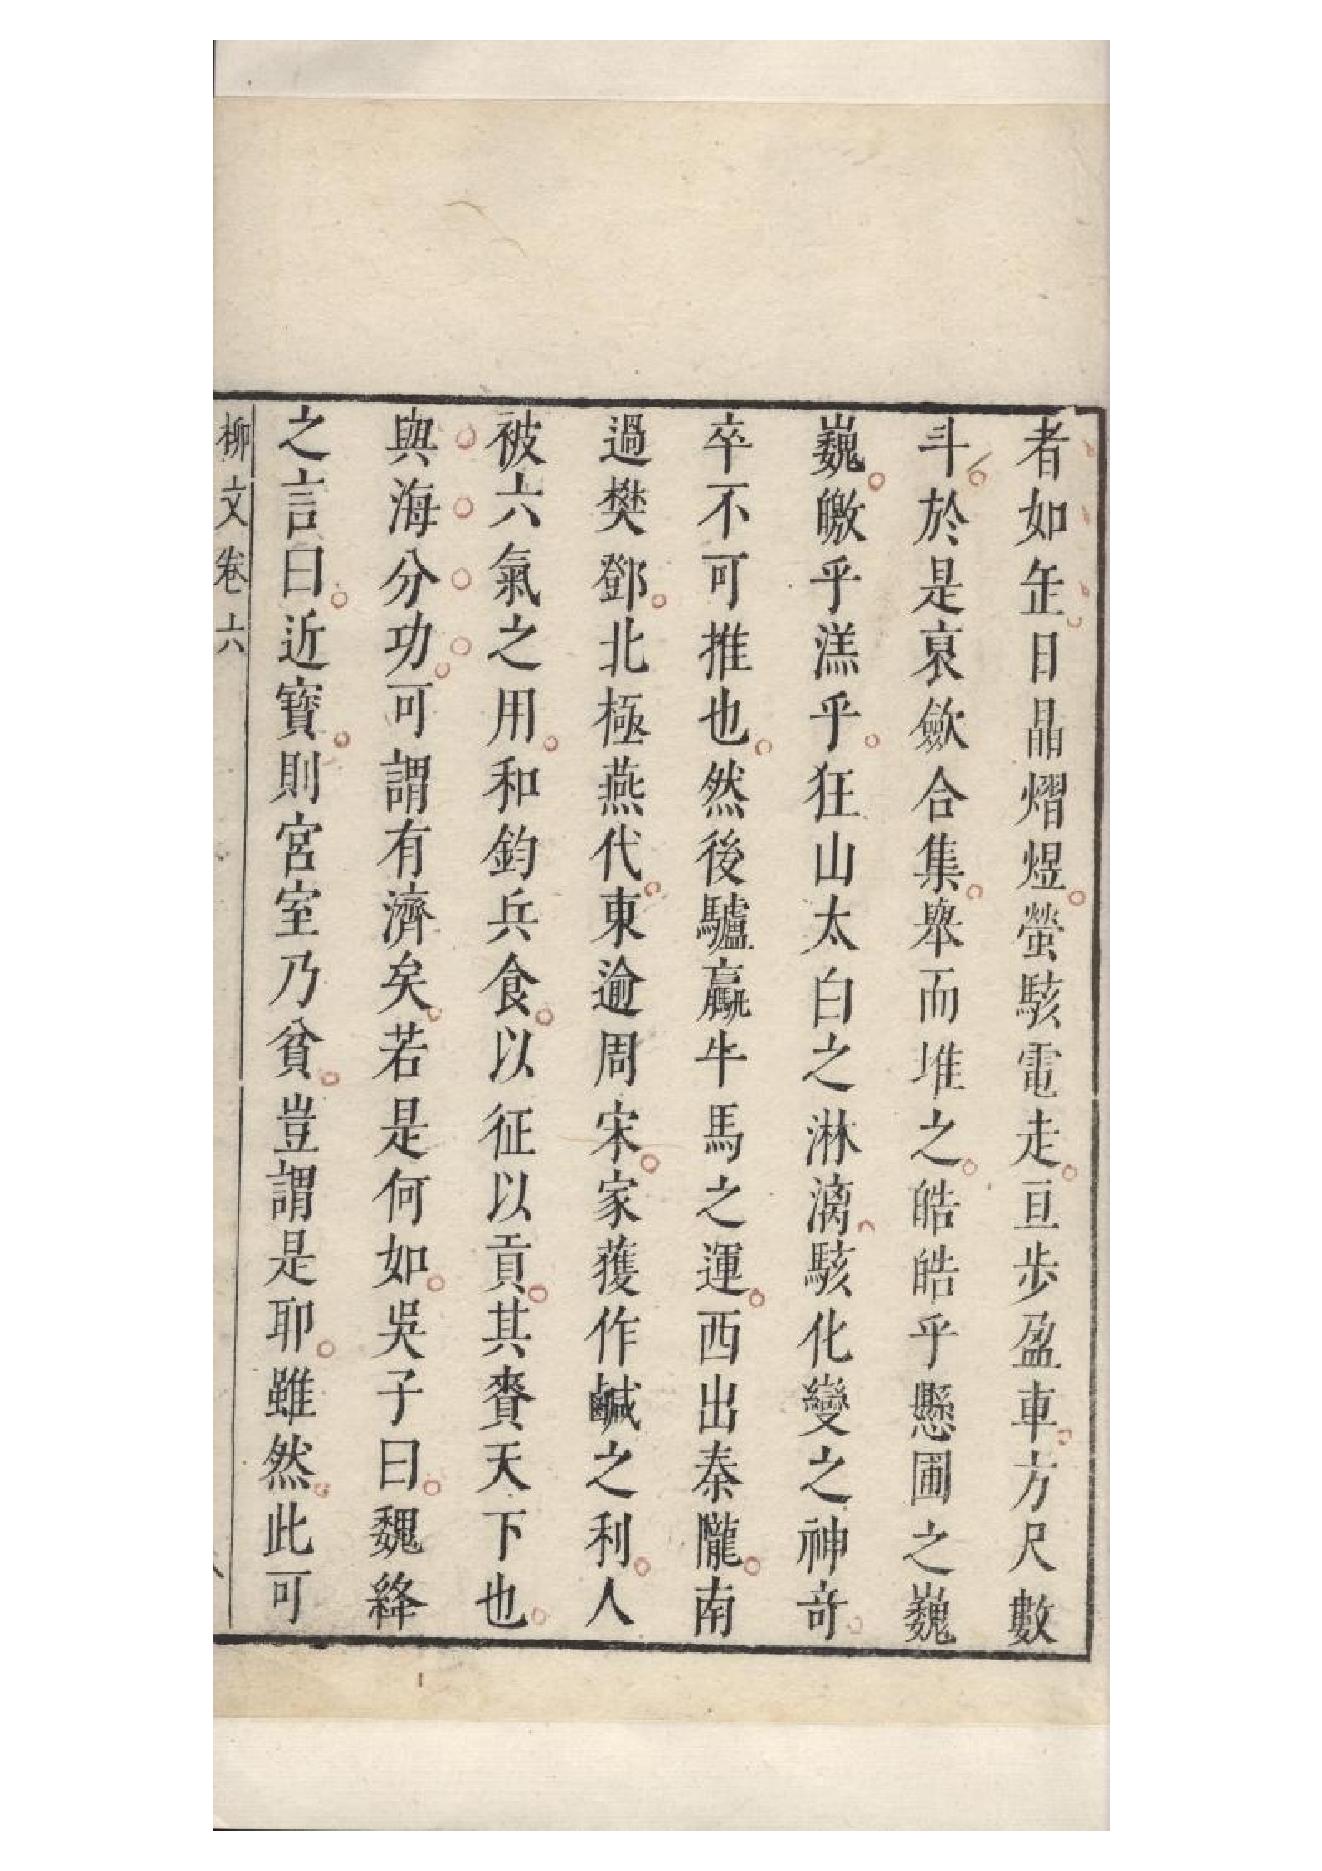 者如缶日晶熠煜螢駭電走亘步盈車方尺數
斗於是裒歛合集舉而堆之皓皓乎懸圃之巍
巍皦乎溔乎狂山太白之淋漓駭化變之神奇
卒不可推也然後驢驘牛馬之運西出秦隴南
過樊鄧北極燕代東逾周宋家獲作鹹之利人
被六氣之用和鈞兵食以征以貢其賚天下也
與海分功可謂有濟矣若是何如吳子曰魏絳
之言曰近寶則宮室乃貧豈謂是耶雖然此可
柳文卷六